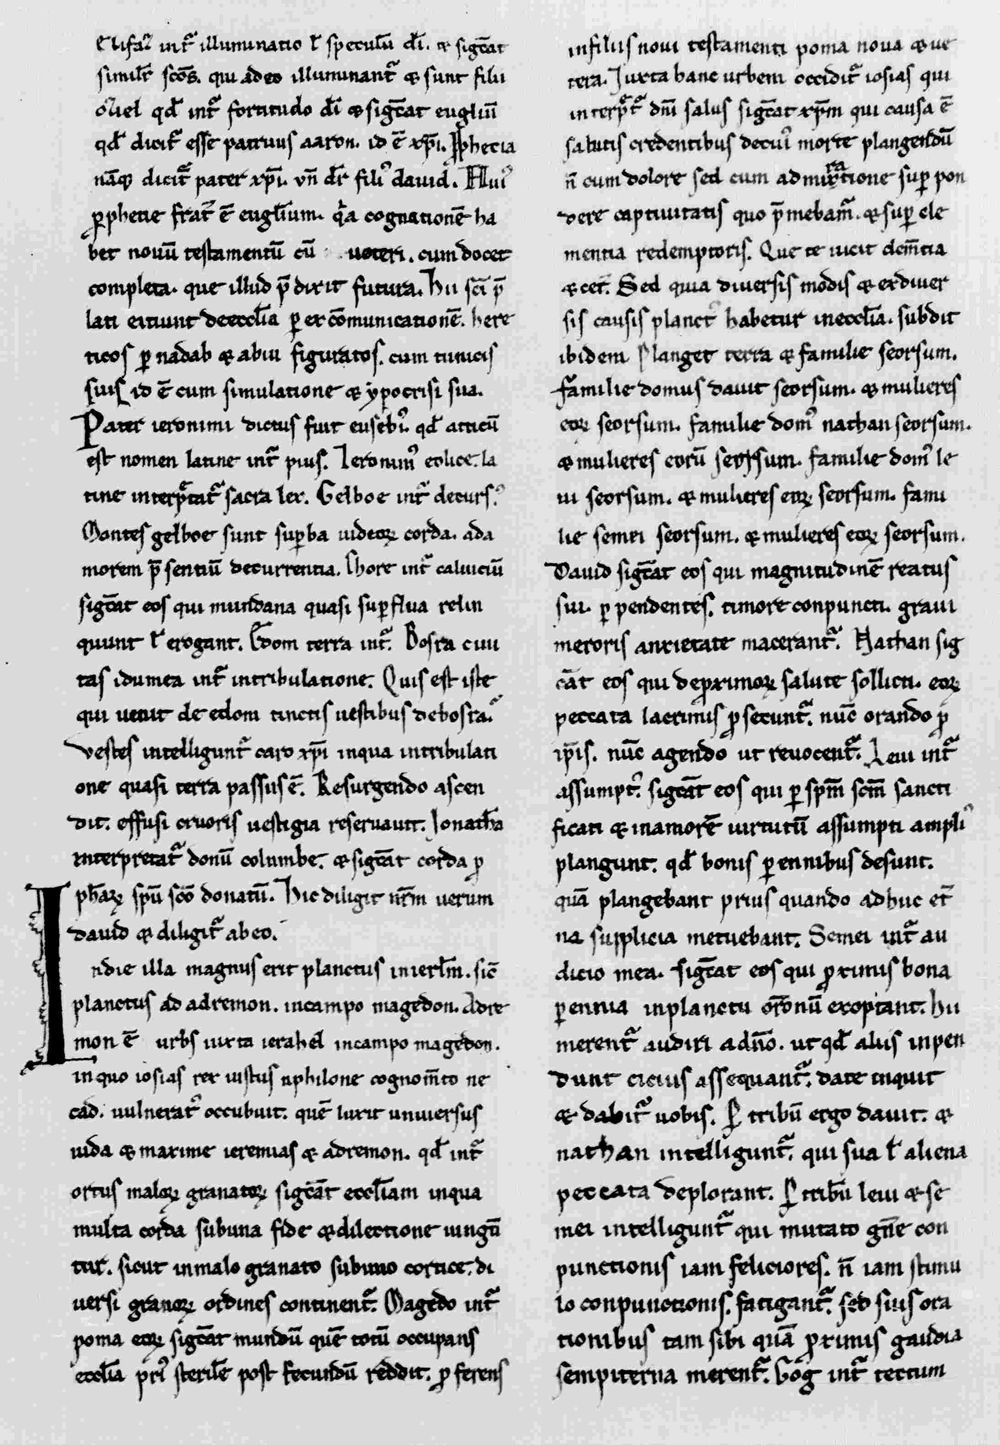 Elisaƀ int̄ illuminatio ł speculū dī. ⁊ sigc̄at
similr̄ scōs. qui adeo illuminant̄ ⁊ sunt filii
oziel qđ int̄ fortitudo dī ⁊ sigc̄at eugliū
qđ dicit̄ esse patruus aaron. id ē xp̄i. Ꝓphetia
nāq; dicit̄ pater xp̄i. vn̄ dr̄ fili᷒ david. Hui᷒
ꝓphetie frat̄ ē euglium. q̄a cognationē ha
bet novū testamentū cū voteri. cum docet
completa. que illud p̄dixit futura. Hii sc̄i p̄
lati eiciunt deecclīa ꝑ excōmunicationē. here
ticos ꝑ nadab ⁊ abiu figuratos. cum tunicis
suis id ē cum simulatione ⁊ ypocrisi sua.
Pater ieronimi dictus fuit eusebi᷒. qđ atticū
est nomen latine int̄ pius. Ieronim᷒ eolice. la
tine interp̄tat̄ sacra lex. Gelboe int̄ decurs᷒.
Montes gelboe sunt supꝑba iudeoꝝ corda. ada
morem p̄sentiū decurrentia. Chore int̄ calviciū
sigc̄at eos qui mundana quasi suꝑflua relin
quunt ł erogant. Edom terra int̄. Bosra civi
tas idumea int̄ intribulatione. Quis est iste
qui venit de edom tinctis vestibus debosra.
vestes intelligunt̄ caro xp̄i inqua intribulati
one quasi terra passus ē. Resurgendo ascen
dit. effusi cruoris vestigia reservavit. Jonatha
interpretat̄ donū columbe. ⁊ sigc̄at corda ꝓ
phaꝝ spū scō donatū. Hic diligit nr̄m verum
david ⁊ diligit̄ abeo.
Indie illa magnus erit planctus inierl̄m. sic̄
planctus ad adremon. incampo magedon. Adre
mon ē urbs iuxta ierahel incampo magedon.
inquo iosias rex iustus aphilone cognom̄to ne
cao. vulnerat᷒ occubuit. quē luxit universus
iuda ⁊ maxime ieremias ⁊ adremon. qđ int̄
ortus maloꝝ granatoꝝ sigc̄at eccl̄iam inqua
multa corda subuna fide ⁊ dilectione iungū
tur. sicut inmalo granato subuno cortice. di
versi granoꝝ ordines continent̄. Magedo int̄
poma eoꝝ sigc̄at mundū quē totū occupans
eccl̄ia pri᷒ sterilē post fecundū reddit. ꝓferens
infiliis novi testamenti poma nova ⁊ ve
tera. Iuxta hanc urbem occidit̄ iosias qui
interp̄t̄ dn̄i salus sigc̄at xp̄m qui causa ē
salutis credentibus decui᷒ morte plangendū
n̄ cum dolore sed cum admiratione suꝑ pon
dere captivitatis quo p̄mebam̄. ⁊ suꝑ cle
mentia redemptoris. Que te vicit clem̄tia
⁊ cet̄. Sed quia diversis modis ⁊ exdiver
sis causis planct᷒ habetur ineccl̄ia. subdit
ibidem Planget terra ⁊ familie seorsum.
familie domus davit seorsum. ⁊ mulieres
eoꝝ seorsum. familie dom᷒ nathan seorsum.
⁊ mulieres eorū seorsum. familie dom᷒ le
vi seorsum. ⁊ mulieres eoꝝ seorsum. fami
lie semei seorsum. ⁊ mulieres eoꝝ seorsum.
David sigc̄at eos qui magnitudinē reatus
sui. ꝑpendentes. timore conpuncti. gravi
meroris anxietate macerant̄. Nathan sig
c̄at eos qui deproximoꝝ salute solliciti. eoꝝ
peccata lacrimis ꝓsecunt̄. nūc orando ꝓ
ip̄is. nūc agendo ut revocent̄. Levi int̄
assumpt᷒. sigc̄at eos qui ꝑ spm̄ scm̄ sancti
ficati ⁊ inamorē virtutū assumpti ampli᷒
plangunt. qđ bonis ꝑennibus desunt.
quā plangebant prius quando adhuc et̄
na supplicia metuebant. Semei int̄ au
dicio mea. sigc̄at eos qui ꝓximis bona
ꝑennia inplanctu or̄onū exoptant. hii
merent̄ audiri adn̄o. ut qđ aliis inpen
dunt cicius assequant̄. date inquit
⁊ dabit̄ vobis. Ꝑ tribū ergo davit. ⁊
nathan intelligunt̄. qui sua ł aliena
peccata deplorant. Ꝑ tribū levi ⁊ se
mei intelligunt̄ qui mutato gn̄e con
punctionis iam feliciores. n̄ iam stimu
lo conpunctionis. fatigant̄. sed suis ora
tionibus tam sibi quā ꝓximis gaudia
sempiterna merent̄. Gog int̄ tectum